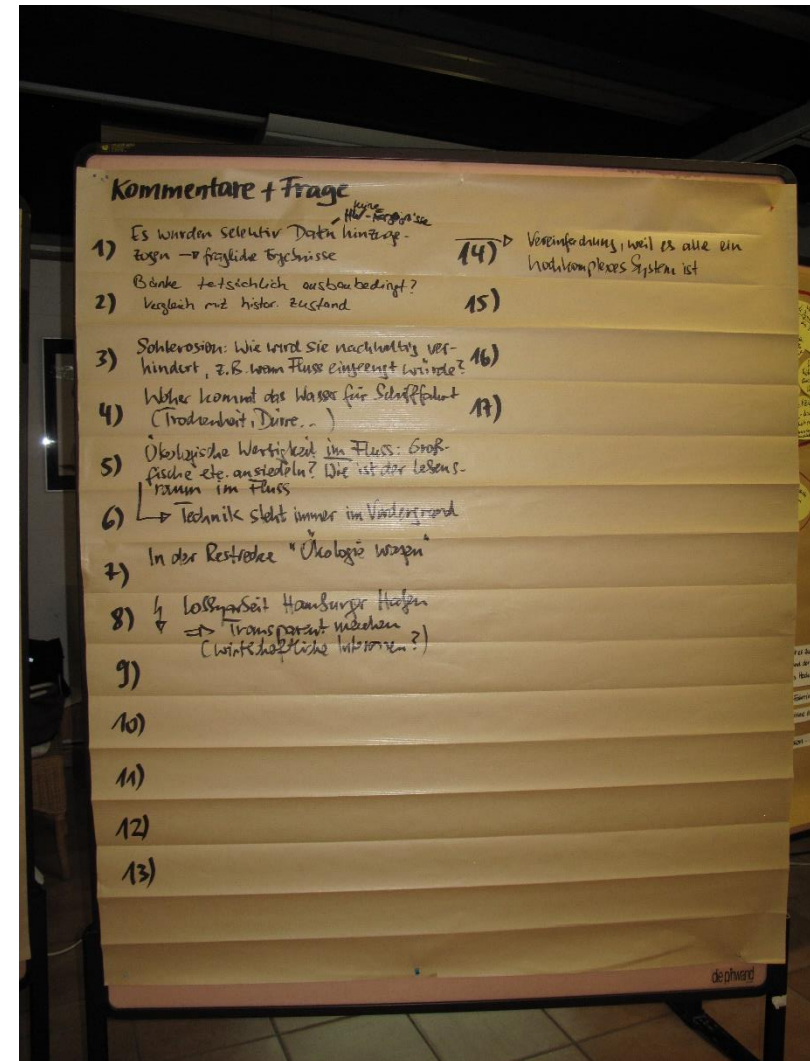 Kommentare + Frage
kurze
HW-Ereignisse
1) Es wurden selektiv Daten hinzuge-
zogen → fragliche Ergebnisse
2) Bänke tatsächlich ausbaubedingt?
Vergleich mit histor. Zustand
3) Sohlerosion: Wie wird sie nachhaltig ver-
hindert, z.B. wenn Fluss eingeengt würde?
4) Woher kommt das Wasser für Schifffahrt
(Trockenheit, Dürre...)
5) Ökologische Wertigkeit im Fluss: Groß-
fische etc. ansiedeln? Wie ist der Lebens-
raum im Fluss
6) → Technik steht immer im Vordergrund
7) In der Reststrecke "Ökologie wagen"
8) Lobbyarbeit Hamburger Hafen
⇒ Transparent machen
(wirtschaftliche Interessen?)
9)
10)
11)
12)
13)
14) Vereinfachung, weil es alle ein
hochkomplexes System ist
15)
16)
17)
die pinwand